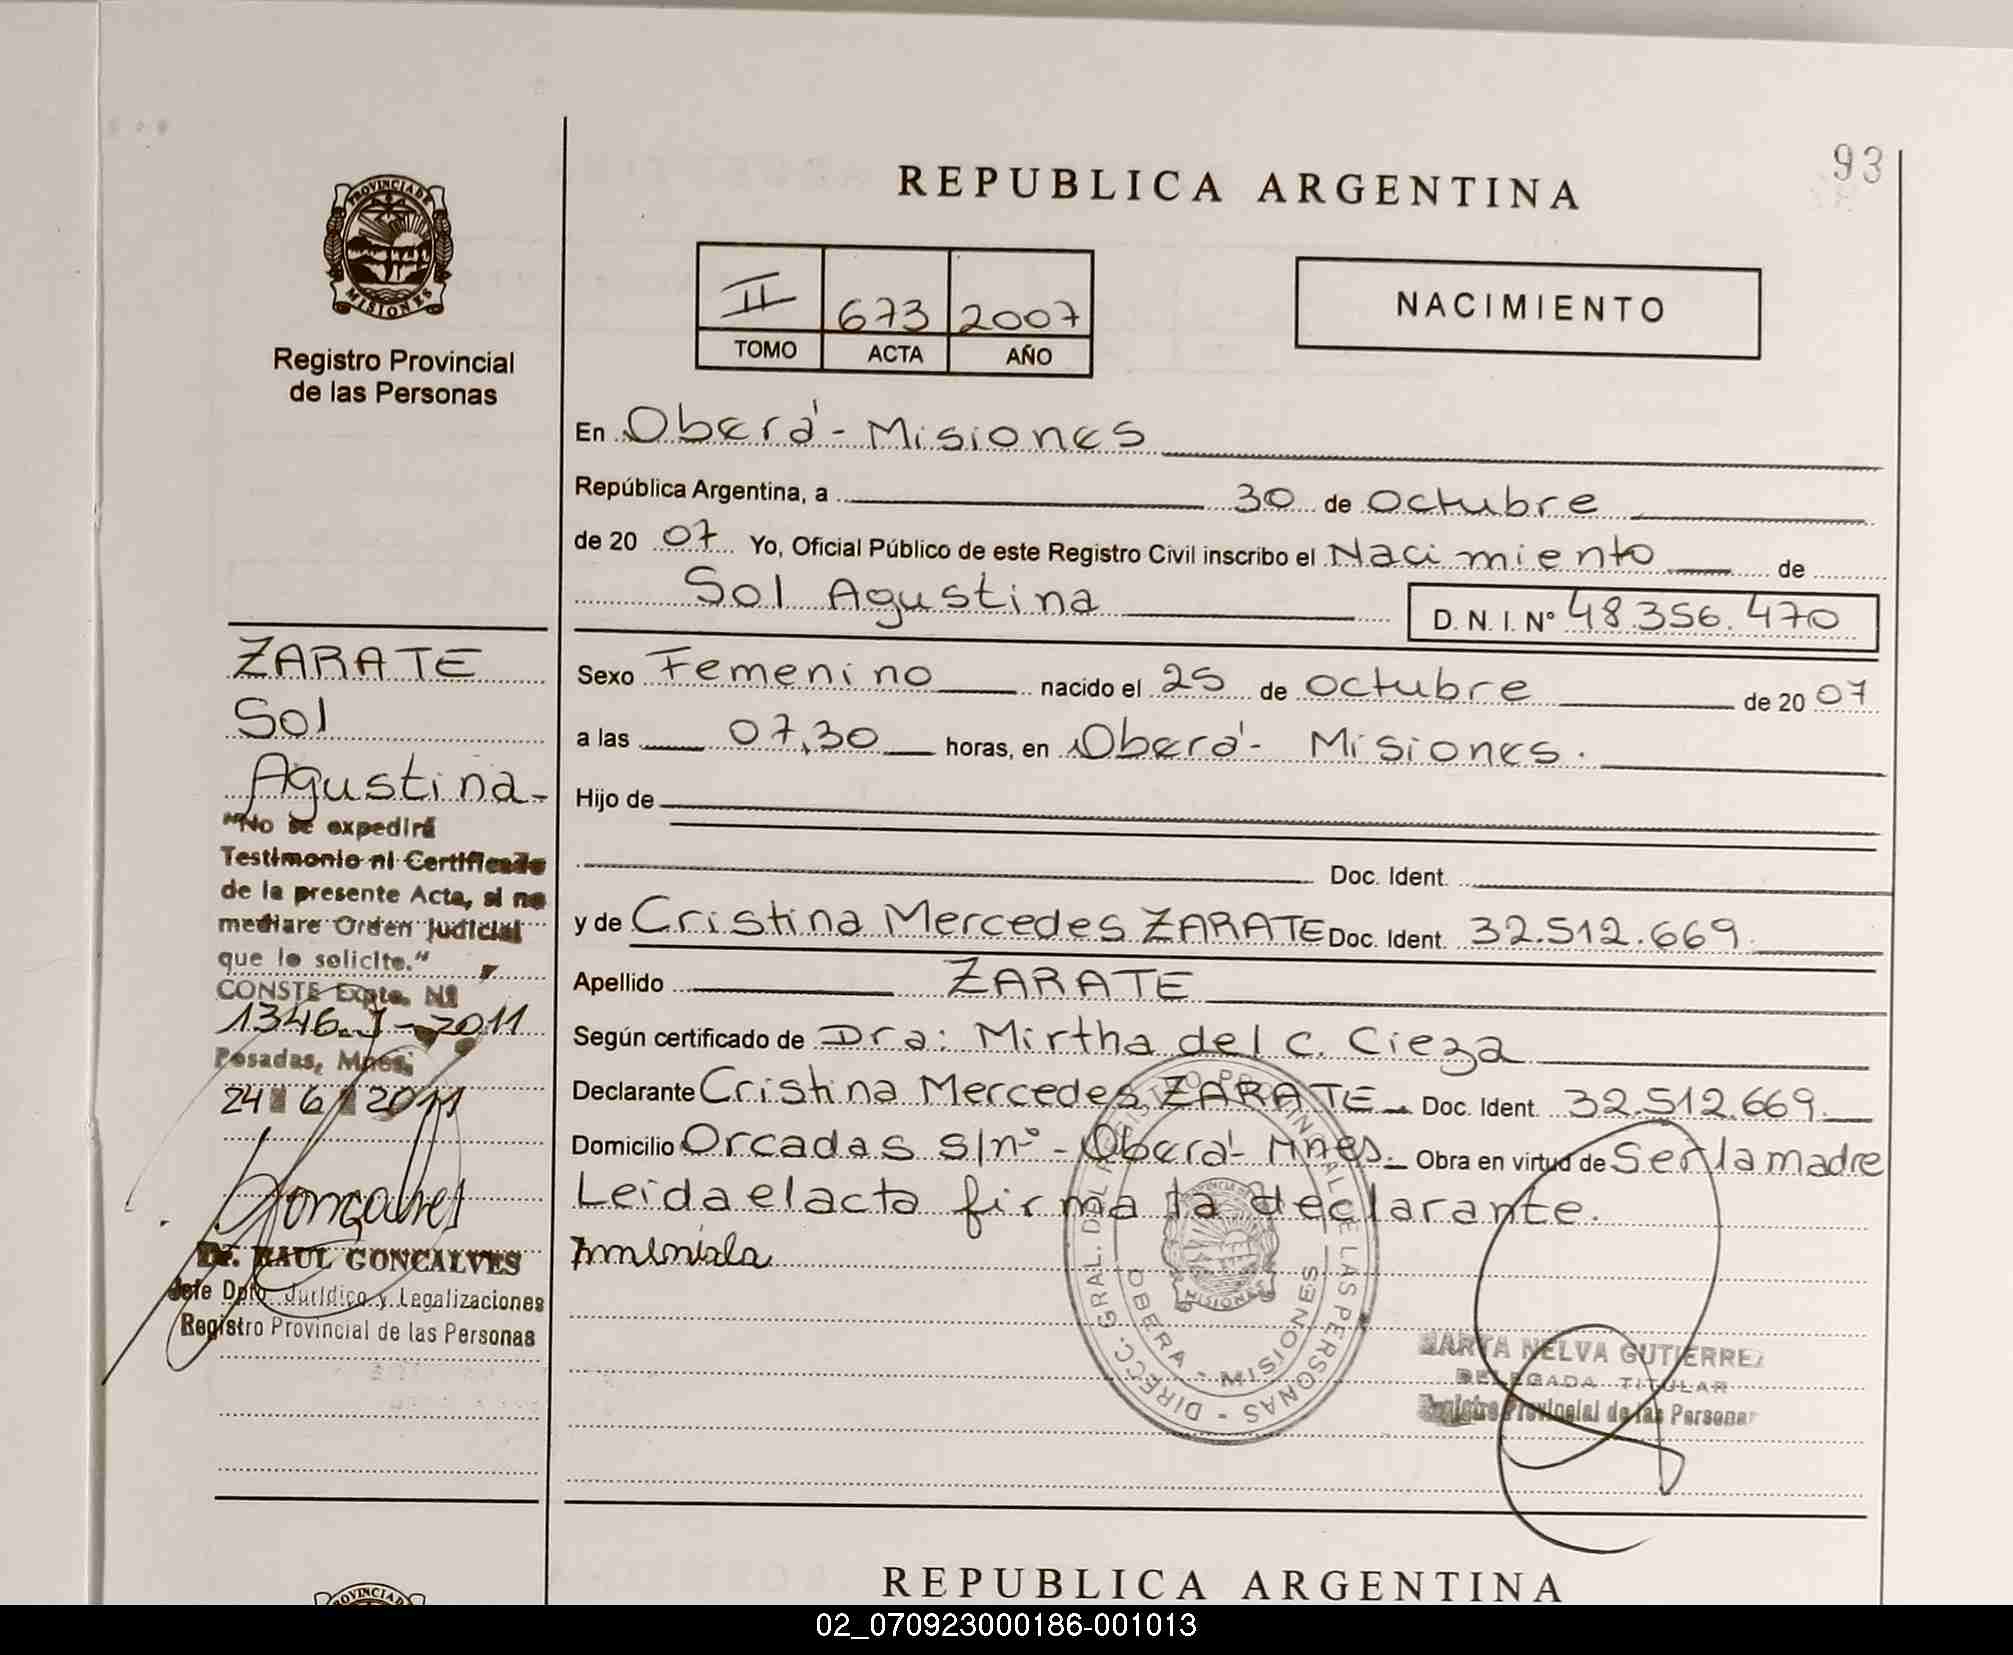 93
PROVINCIA DE
MISIONES
Registro Provincial
de las Personas
REPUBLICA ARGENTINA
II 673 2007
TOMO ACTA AÑO
NACIMIENTO
En Oberá - Misiones
República Argentina, a 30 de Octubre
de 20 07 Yo, Oficial Público de este Registro Civil inscribo el Nacimiento de
Sol Agustina D. N. I. Nº 48.356.470
Sexo Femenino nacido el 25 de Octubre de 20 07
a las 07,30 horas, en Oberá - Misiones.
Hijo de
Doc. Ident.
y de Cristina Mercedes ZARATE Doc. Ident. 32.512.669.
Apellido ZARATE
Según certificado de Dra: Mirtha del C. Cieza
Declarante Cristina Mercedes ZARATE Doc. Ident. 32.512.669.
Domicilio Orcadas S/nº - Oberá - Mnes. Obra en virtud de Ser la madre
Leida el acta firma la declarante.
DIRECC. GRAL. DEL REGISTRO PROVINCIAL DE LAS PERSONAS -
OBERA - MISIONES
MISIONES
MARTA NELVA GUTIERREZ
DELEGADA TITULAR
Registro Provincial de las Personas
ZARATE
Sol
Agustina-
"No se expedirá
Testimonio ni Certificado
de la presente Acta, si no
mediare Orden Judicial
que lo solicite."
CONSTE Expte. Nº
1346-J-2011
Posadas, Mnes;
24 6 2011
Goncalves
Dr. RAUL GONCALVES
Jefe Dpto. Jurídico y Legalizaciones
Registro Provincial de las Personas
PROVINCIA DE
REPUBLICA ARGENTINA
02_070923000186-001013